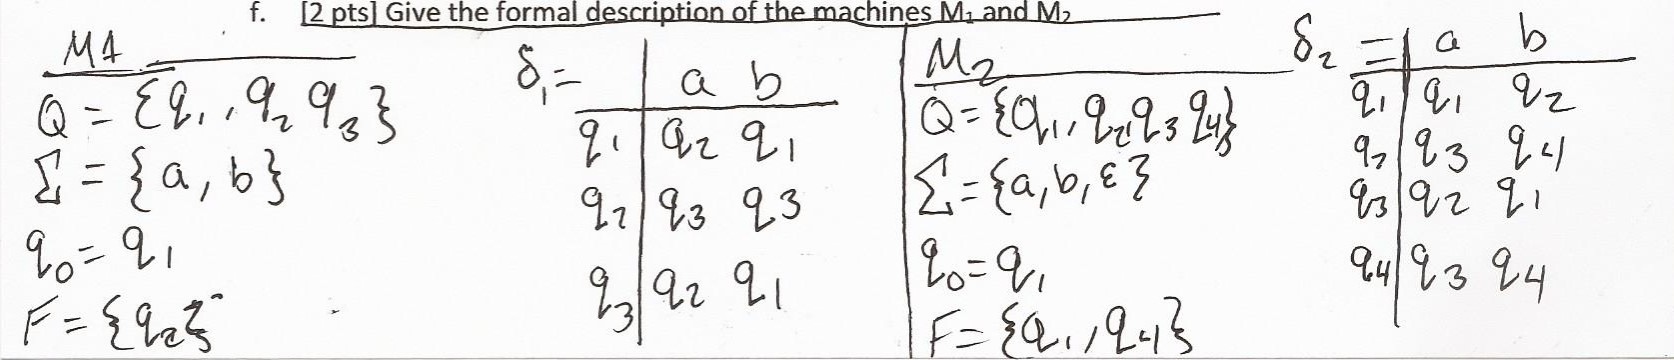 f. [2 pts] Give the formal description of the machines M₁ and M₂
M1
Q = {q₁, q₂ q₃}
Σ = {a, b}
q₀ = q₁
F = {q₂}
δ₁ =
a b
q₁ q₂ q₁
q₂ q₃ q₃
q₃ q₂ q₁
M₂
Q = {q₁, q₂, q₃ q₄}
Σ = {a, b, ε}
q₀ = q₁
F = {q₁, q₄}
δ₂ = a b
q₁ q₁ q₂
q₂ q₃ q₄
q₃ q₂ q₁
q₄ q₃ q₄